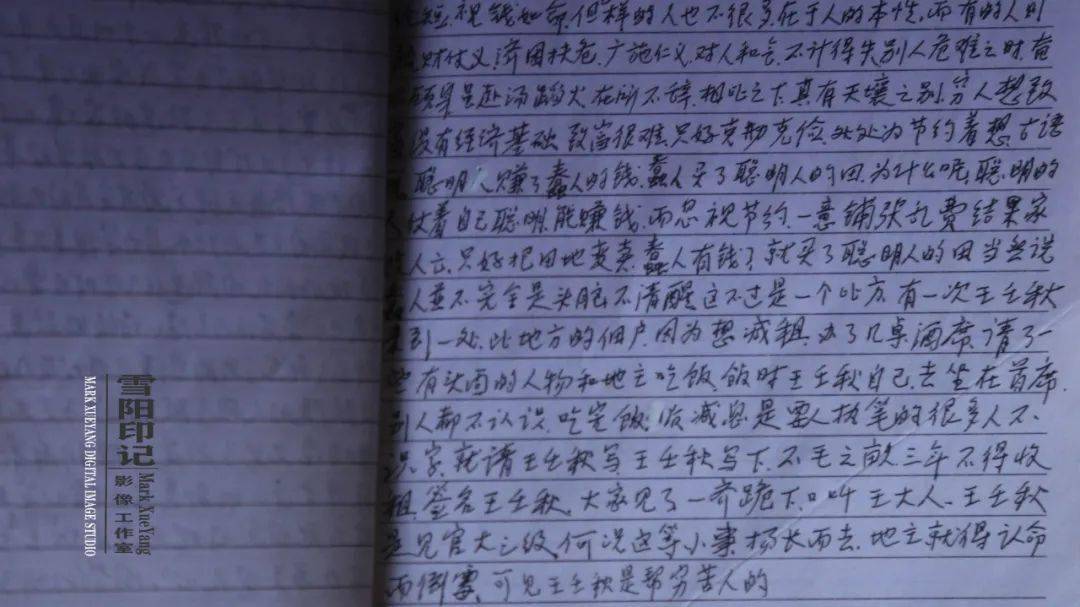 短,视钱如命,但样的人也不很多,在于人的本性,而有的人则
财仗义,济困扶危,广施仁义,对人和气,不计得失别人危难之时,奋
顾身虽赴汤蹈火,在所不辞,相比之下,真有天壤之别,穷人想致
没有经济基础,致富很难,只好克勤克俭,处处为节约着想,古语
聪明人赚了蠢人的钱,蠢人买了聪明人的田,为什么呢,聪明的
仗着自己聪明,能赚钱,而忽视节约,一意铺张乱费结果家
人亡,只好把田地变卖,蠢人有钱了就买了聪明人的田当然说
人並不完全是头脑不清醒这不过是一个比方,有一次王壬秋
到一处,此地方的佃户因为想减租,办了几桌酒席,请了一
些有头面的人物和地主吃饭,饭时王壬秋自己去坐在首席,
别人都不认识,吃完饭,收减总是要人执笔的很多人不
识字就请王壬秋写,王壬秋写下,不毛之亩三年不得收
租,签名王壬秋,大家见了一齐跪下,口叫王大人,王壬秋
是见官大三级,何况这等小事,扬长而去,地主就得认命
而倒霉,可见王壬秋是帮穷苦人的
雪阳印记
影像工作室
Mark XueYang
MARK XUEYANG DIGITAL IMAGE STUDIO